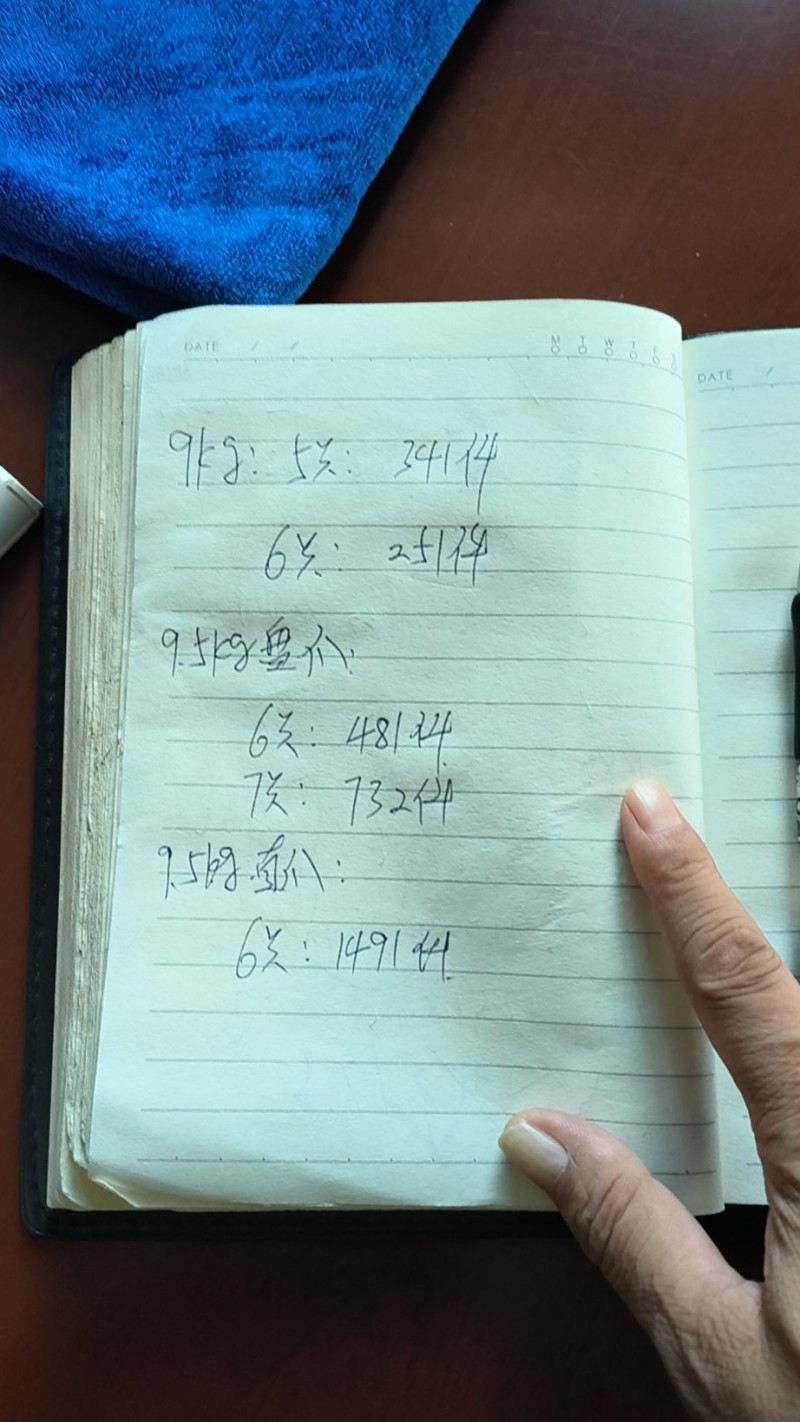 DATE / /
M T W T F S
9kg: 5头: 341件
6头: 251件
9.5kg 盘八:
6头: 481件
7头: 732件
9.5kg 直八:
6头: 1491件
DATE /